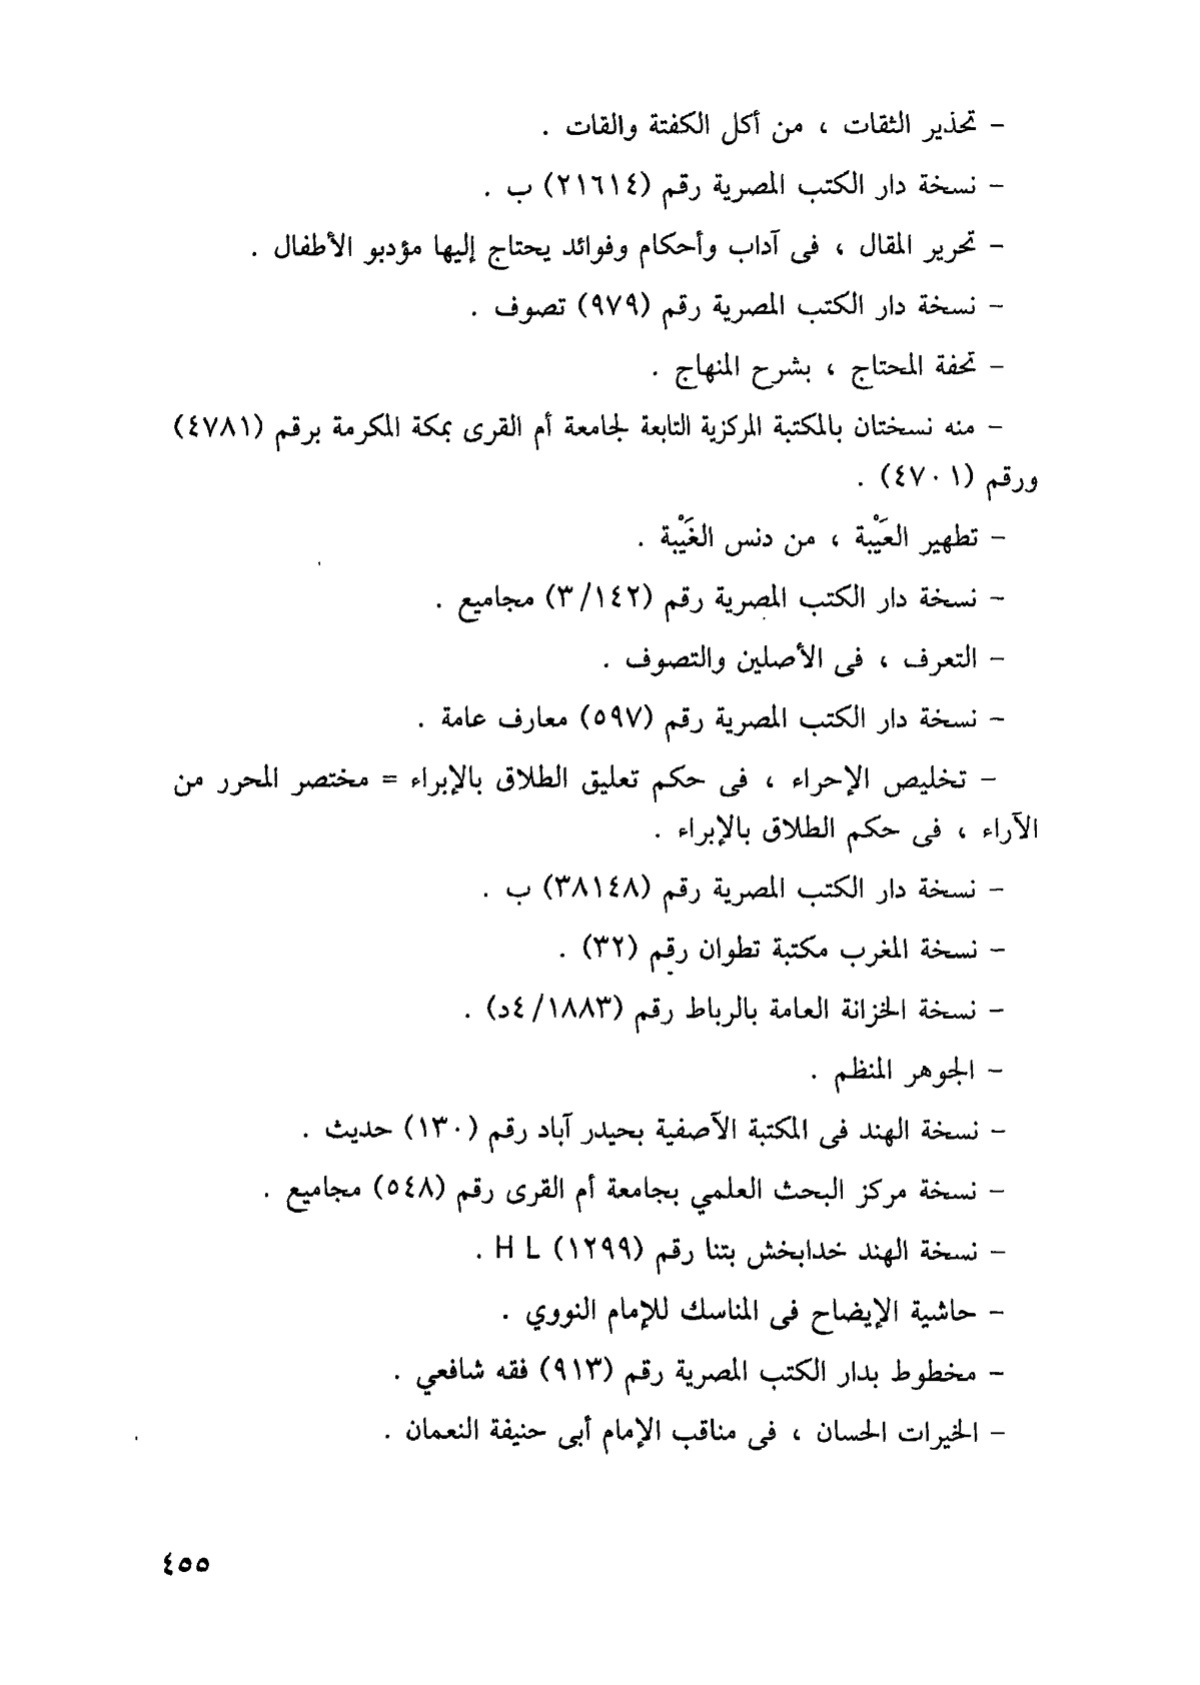 – تحذير الثقات ، من أكل الكفتة والقات .
– نسخة دار الكتب المصرية رقم (٢١٦١٤) ب .
– تحرير المقال ، فى آداب وأحكام وفوائد يحتاج إليها مؤدبو الأطفال .
– نسخة دار الكتب المصرية رقم (٩٧٩) تصوف .
– تحفة المحتاج ، بشرح المنهاج .
– منه نسختان بالمكتبة المركزية التابعة لجامعة أم القرى بمكة المكرمة برقم (٤٧٨١)
ورقم (٤٧٠١) .
– تطهير العَيْبة ، من دنس الغَيْبة .
– نسخة دار الكتب المصرية رقم (٣/١٤٢) مجاميع .
– التعرف ، فى الأصلين والتصوف .
– نسخة دار الكتب المصرية رقم (٥٩٧) معارف عامة .
– تخليص الإحراء ، فى حكم تعليق الطلاق بالإبراء = مختصر المحرر من
الآراء ، فى حكم الطلاق بالإبراء .
– نسخة دار الكتب المصرية رقم (٣٨١٤٨) ب .
– نسخة المغرب مكتبة تطوان رقم (٣٢) .
– نسخة الخزانة العامة بالرباط رقم (٤/١٨٨٣د) .
– الجوهر المنظم .
– نسخة الهند فى المكتبة الآصفية بحيدر آباد رقم (١٣٠) حديث .
– نسخة مركز البحث العلمي بجامعة أم القرى رقم (٥٤٨) مجاميع .
– نسخة الهند خدابخش بتنا رقم (١٢٩٩) H L .
– حاشية الإيضاح فى المناسك للإمام النووي .
– مخطوط بدار الكتب المصرية رقم (٩١٣) فقه شافعي .
– الخيرات الحسان ، فى مناقب الإمام أبى حنيفة النعمان .
٤٥٥